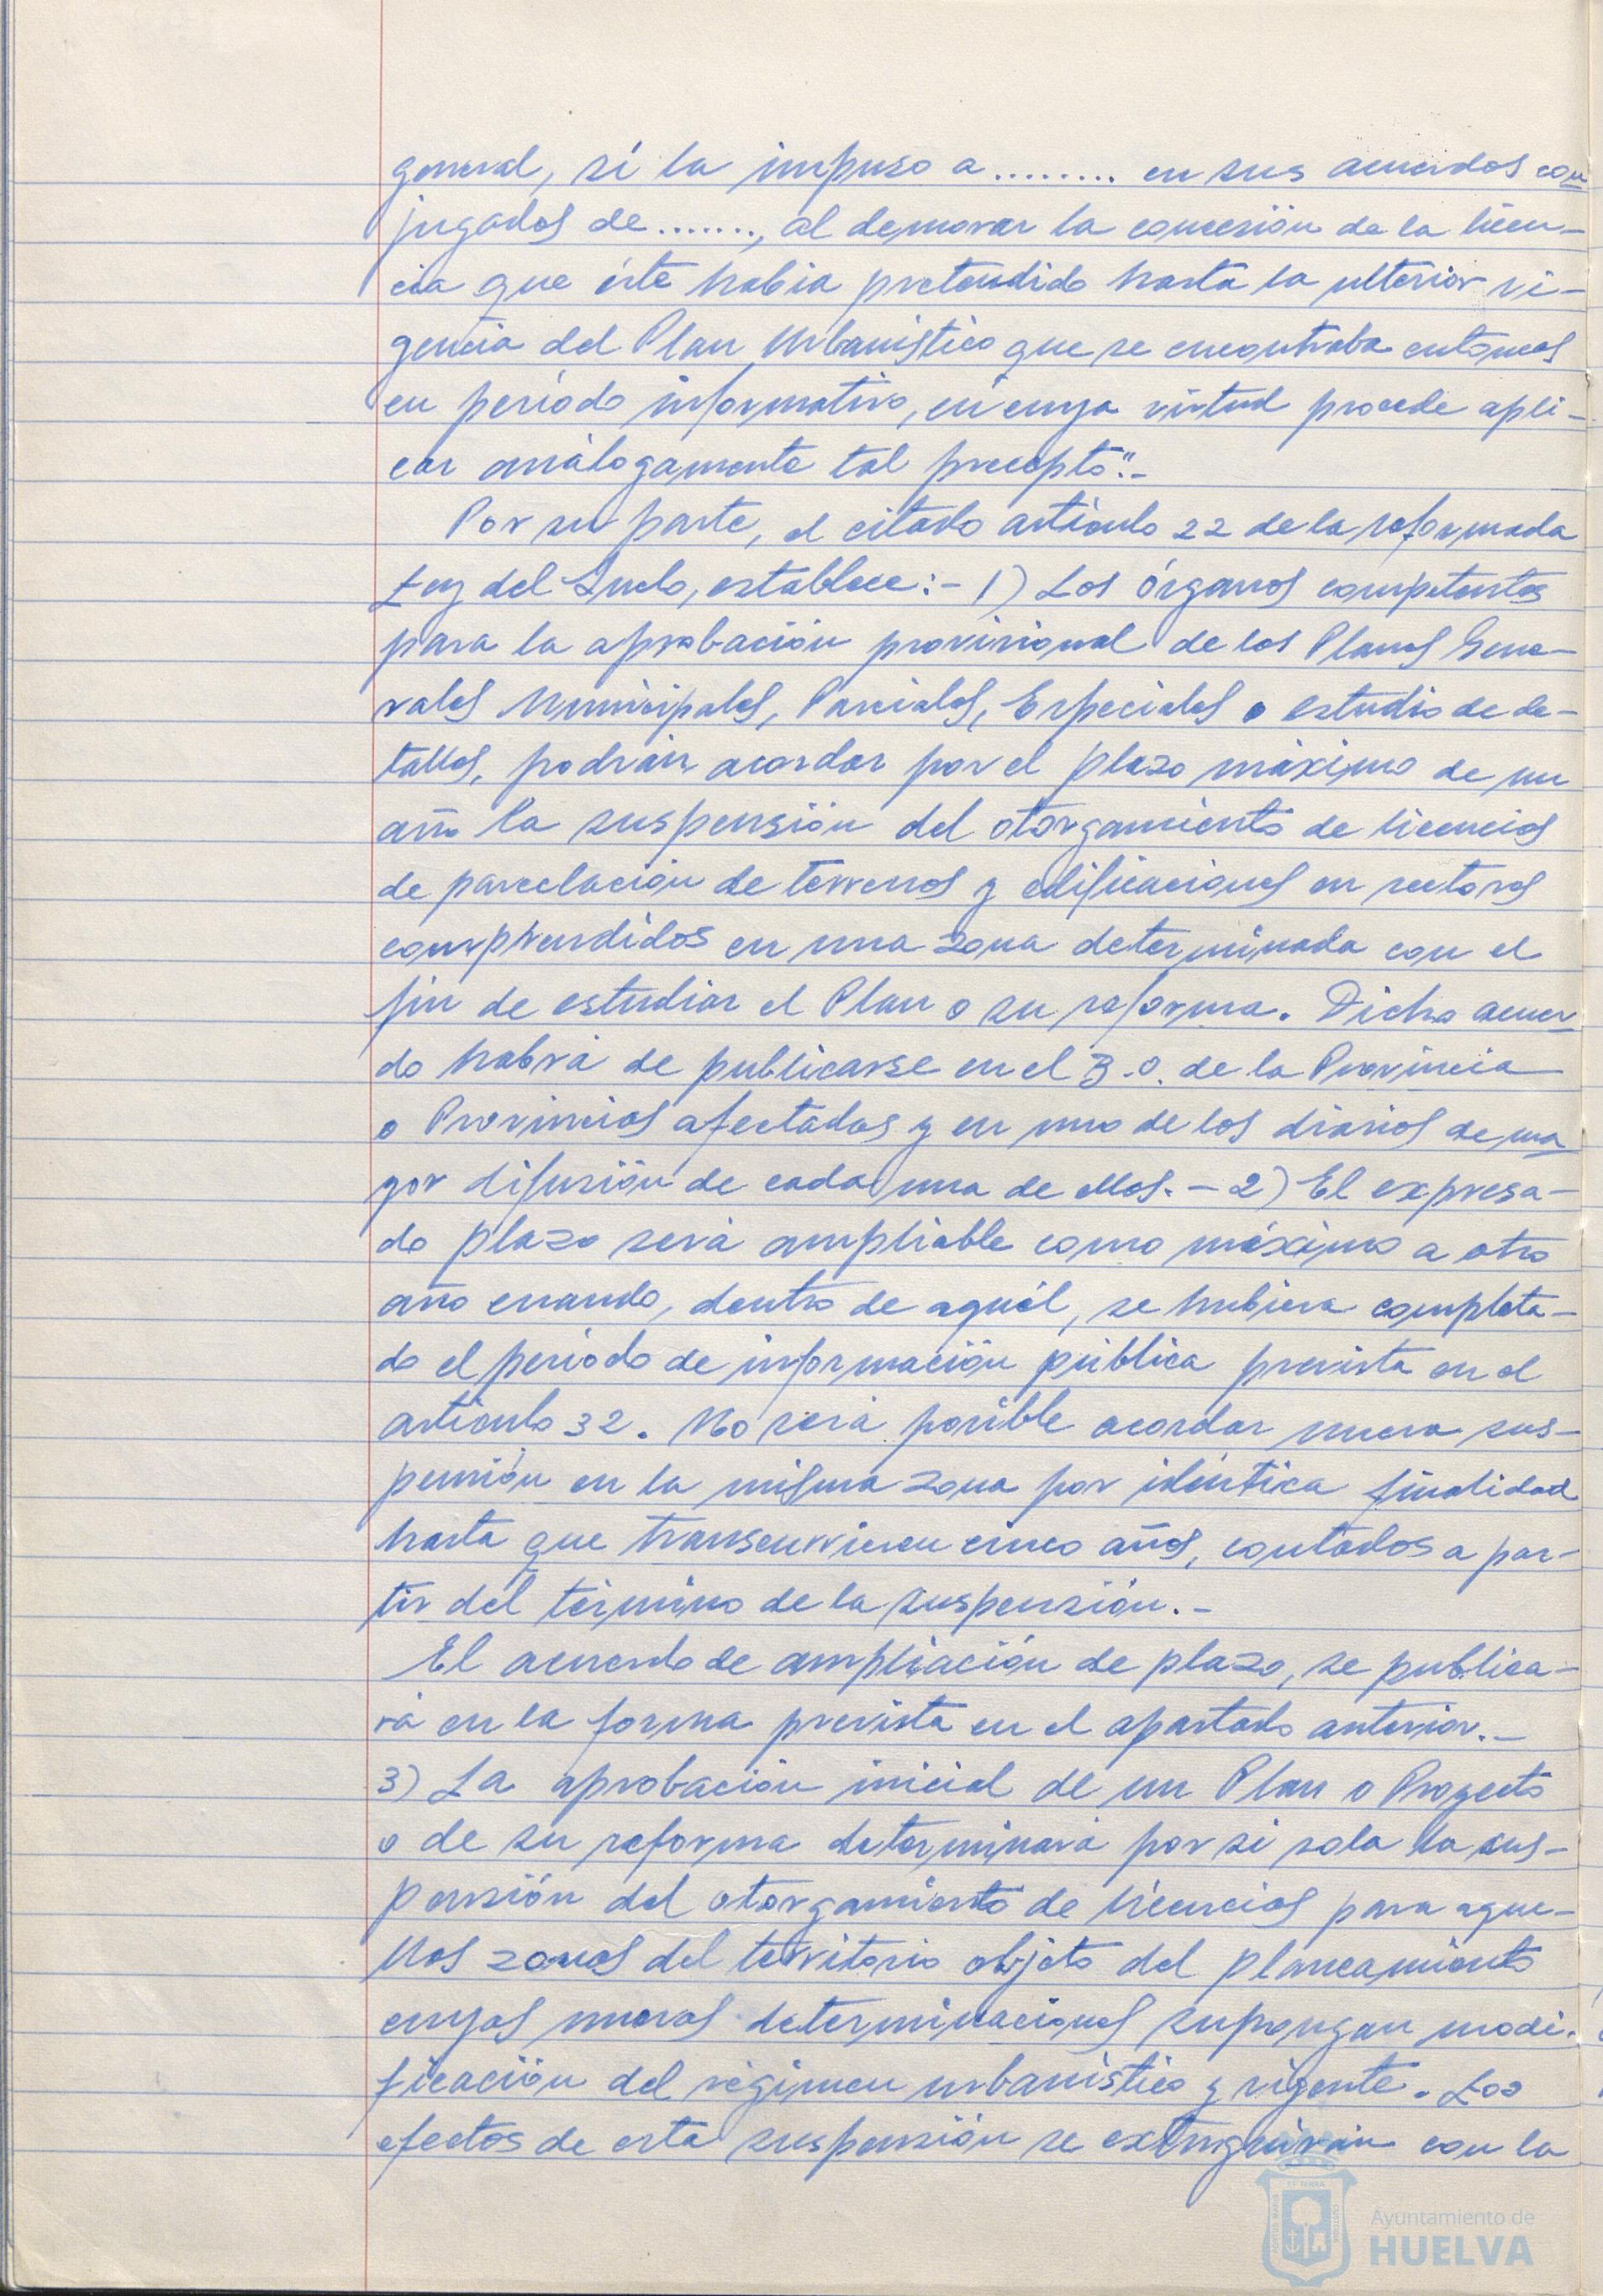 general, sí la impuso a ........ en sus acuerdos con
jugados de ......., al demorar la concesión de la licen-
cia que éste había pretendido hasta la ulterior vi-
gencia del Plan Urbanístico que se encontraba entonces
en período informativo, en cuya virtud procede apli-
car análogamente tal precepto".-
Por su parte, el citado artículo 22 de la reformada
Ley del Suelo, establece:- 1) Los órganos competentes
para la aprobación provisional de los Planes Gene-
rales Municipales, Parciales, Especiales o estudio de de-
talles, podrán acordar por el plazo máximo de un
año la suspensión del otorgamiento de licencias
de parcelación de terrenos y edificaciones en sectores
comprendidos en una zona determinada con el
fin de estudiar el Plan o su reforma. Dicho acuer
do habrá de publicarse en el B.O. de la Provincia
o Provincias afectadas y en uno de los diarios de ma
yor difusión de cada una de ellas.- 2) El expresa-
do plazo será ampliable como máximo a otro
año cuando, dentro de aquél, se hubiera completa-
do el período de información pública prevista en el
artículo 32. No será posible acordar nueva sus-
pensión en la misma zona por idéntica finalidad
hasta que transcurriesen cinco años, contados a par-
tir del término de la suspensión.-
El acuerdo de ampliación de plazo, se publica-
rá en la forma prevista en el apartado anterior.-
3) La aprobación inicial de un Plan o Proyecto
o de su reforma determinará por si sola la sus-
pensión del otorgamiento de licencias para aque-
llas zonas del territorio objeto del planeamiento
cuyas nuevas determinaciones supongan modi-
ficación del régimen urbanístico y vigente. Los
efectos de esta suspensión se extinguirán con la
Ayuntamiento de
HUELVA